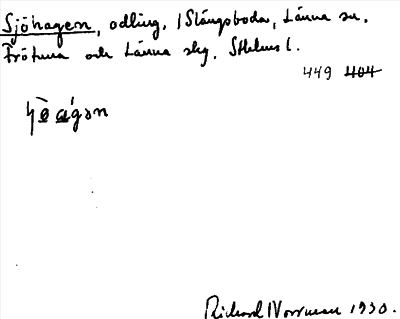 Sjöhagen, odling, /Slängsboda, Länna sn.
Frötuna och Länna skg. Sthlms l.
449 404
Richard Norrman 1930.